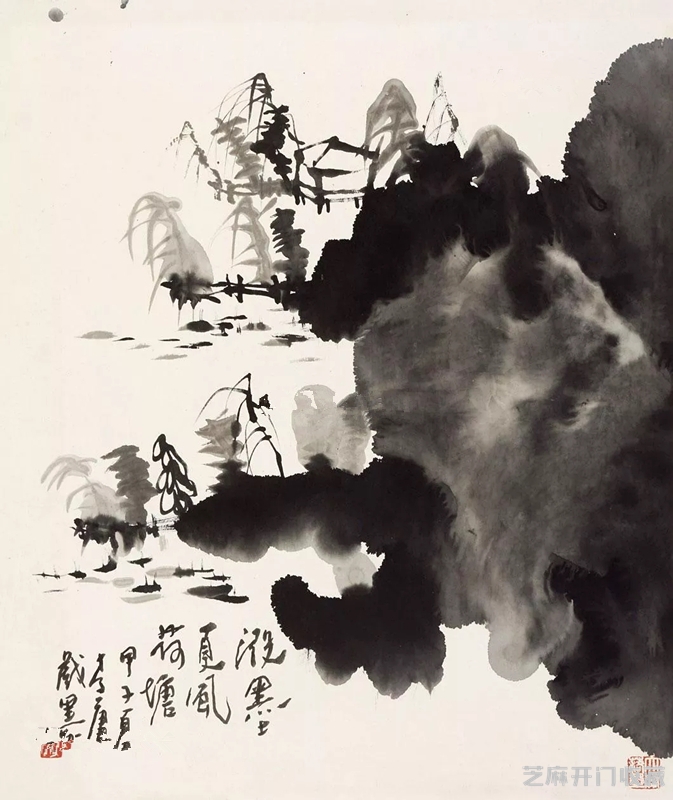 潑墨
夏風
荷塘
甲子夏
戲墨
芝麻开门收藏